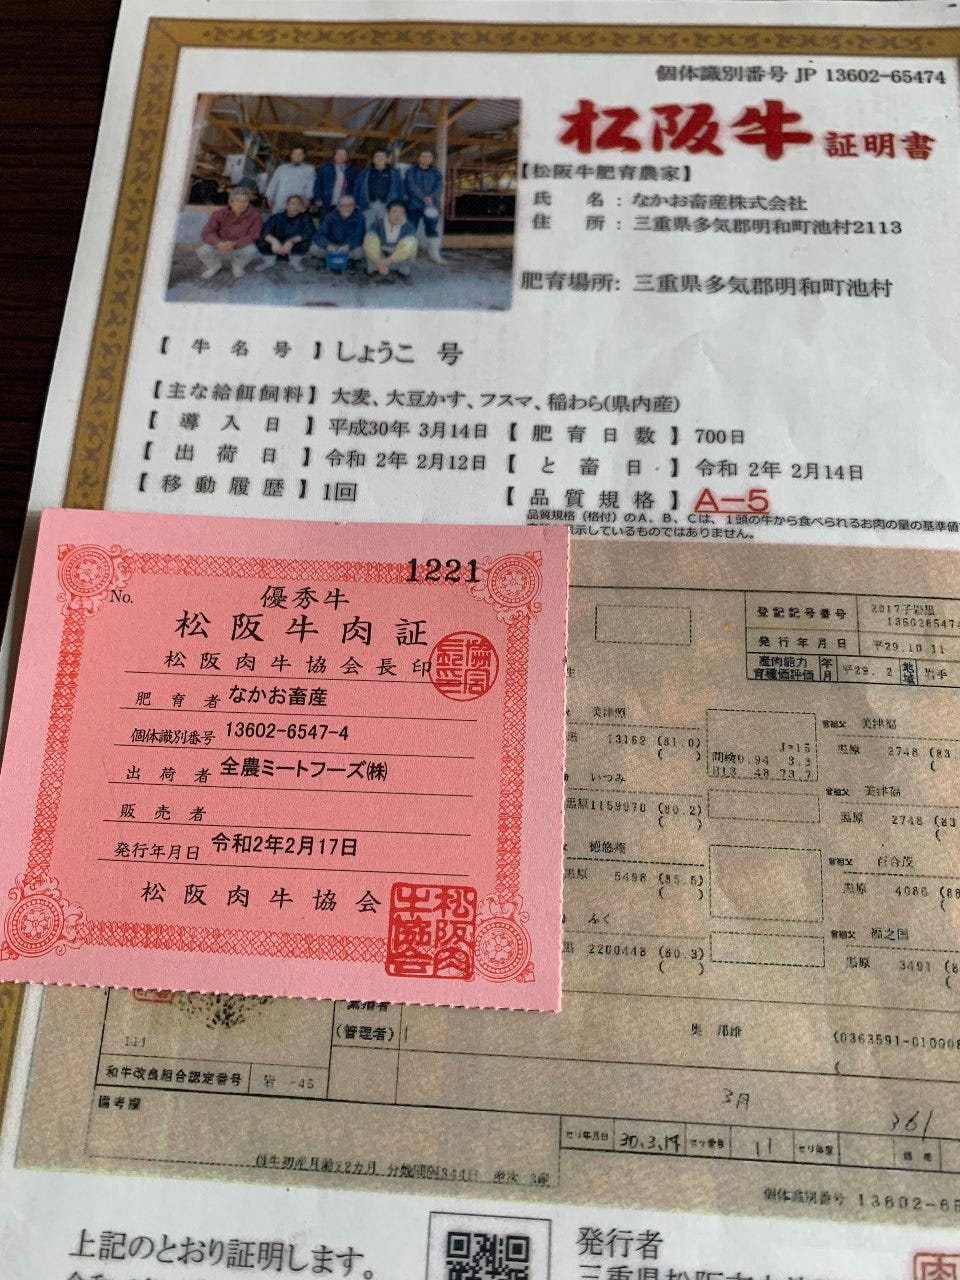 個体識別番号 JP 13602-65474
松阪牛 証明書
【松阪牛肥育農家】
氏 名 : なかお畜産株式会社
住 所 : 三重県多気郡明和町池村2113
肥育場所: 三重県多気郡明和町池村
【 牛 名 号 】しょうこ 号
【主な給餌飼料】大麦、大豆かす、フスマ、稲わら(県内産)
【 導 入 日 】 平成30年 3月14日 【 肥 育 日 数 】 700日
【 出 荷 日 】 令和 2年 2月12日 【 と 畜 日 】 令和 2年 2月14日
【 移 動 履 歴 】 1回 【 品 質 規 格 】 A-5
品質規格(格付)のA、B、Cは、1頭の牛から食べられるお肉の量の基準値
示しているものではありません。
1221
No.
優秀牛
松阪牛肉証
松阪肉牛協会長印
肥育者 なかお畜産
個体識別番号 13602-6547-4
出荷者 全農ミートフーズ(株)
販売者
発行年月日 令和2年2月17日
松阪肉牛協会
松阪肉牛協会
登記記号番号 2017子岩黒
1360265474
発行年月日 平29.10.11
産肉能力 年 平29. 2 地 岩手
育種価評価 月 域
美津照 美津福
13162 (81.0) 黒原 2748 (83
いつみ 美津福
黒原1159970 (80.2) 黒原 2748 (83
百合茂
5498 (85.5) 黒原 4086 (88
ふく 福之国
2200448 (80.3) 黒原 3491 (8
(管理者) 奥 邦雄 (0363591-010008
111
和牛改良組合認定番号 岩 -45
備考欄
3月
361
セリ年月日 30.3.14 セリ番号 11 セリ体重 価格
母牛初産月齢22カ月 分娩間隔344日 産次 3産
個体識別番号 13602-65
上記のとおり証明します。
発行者